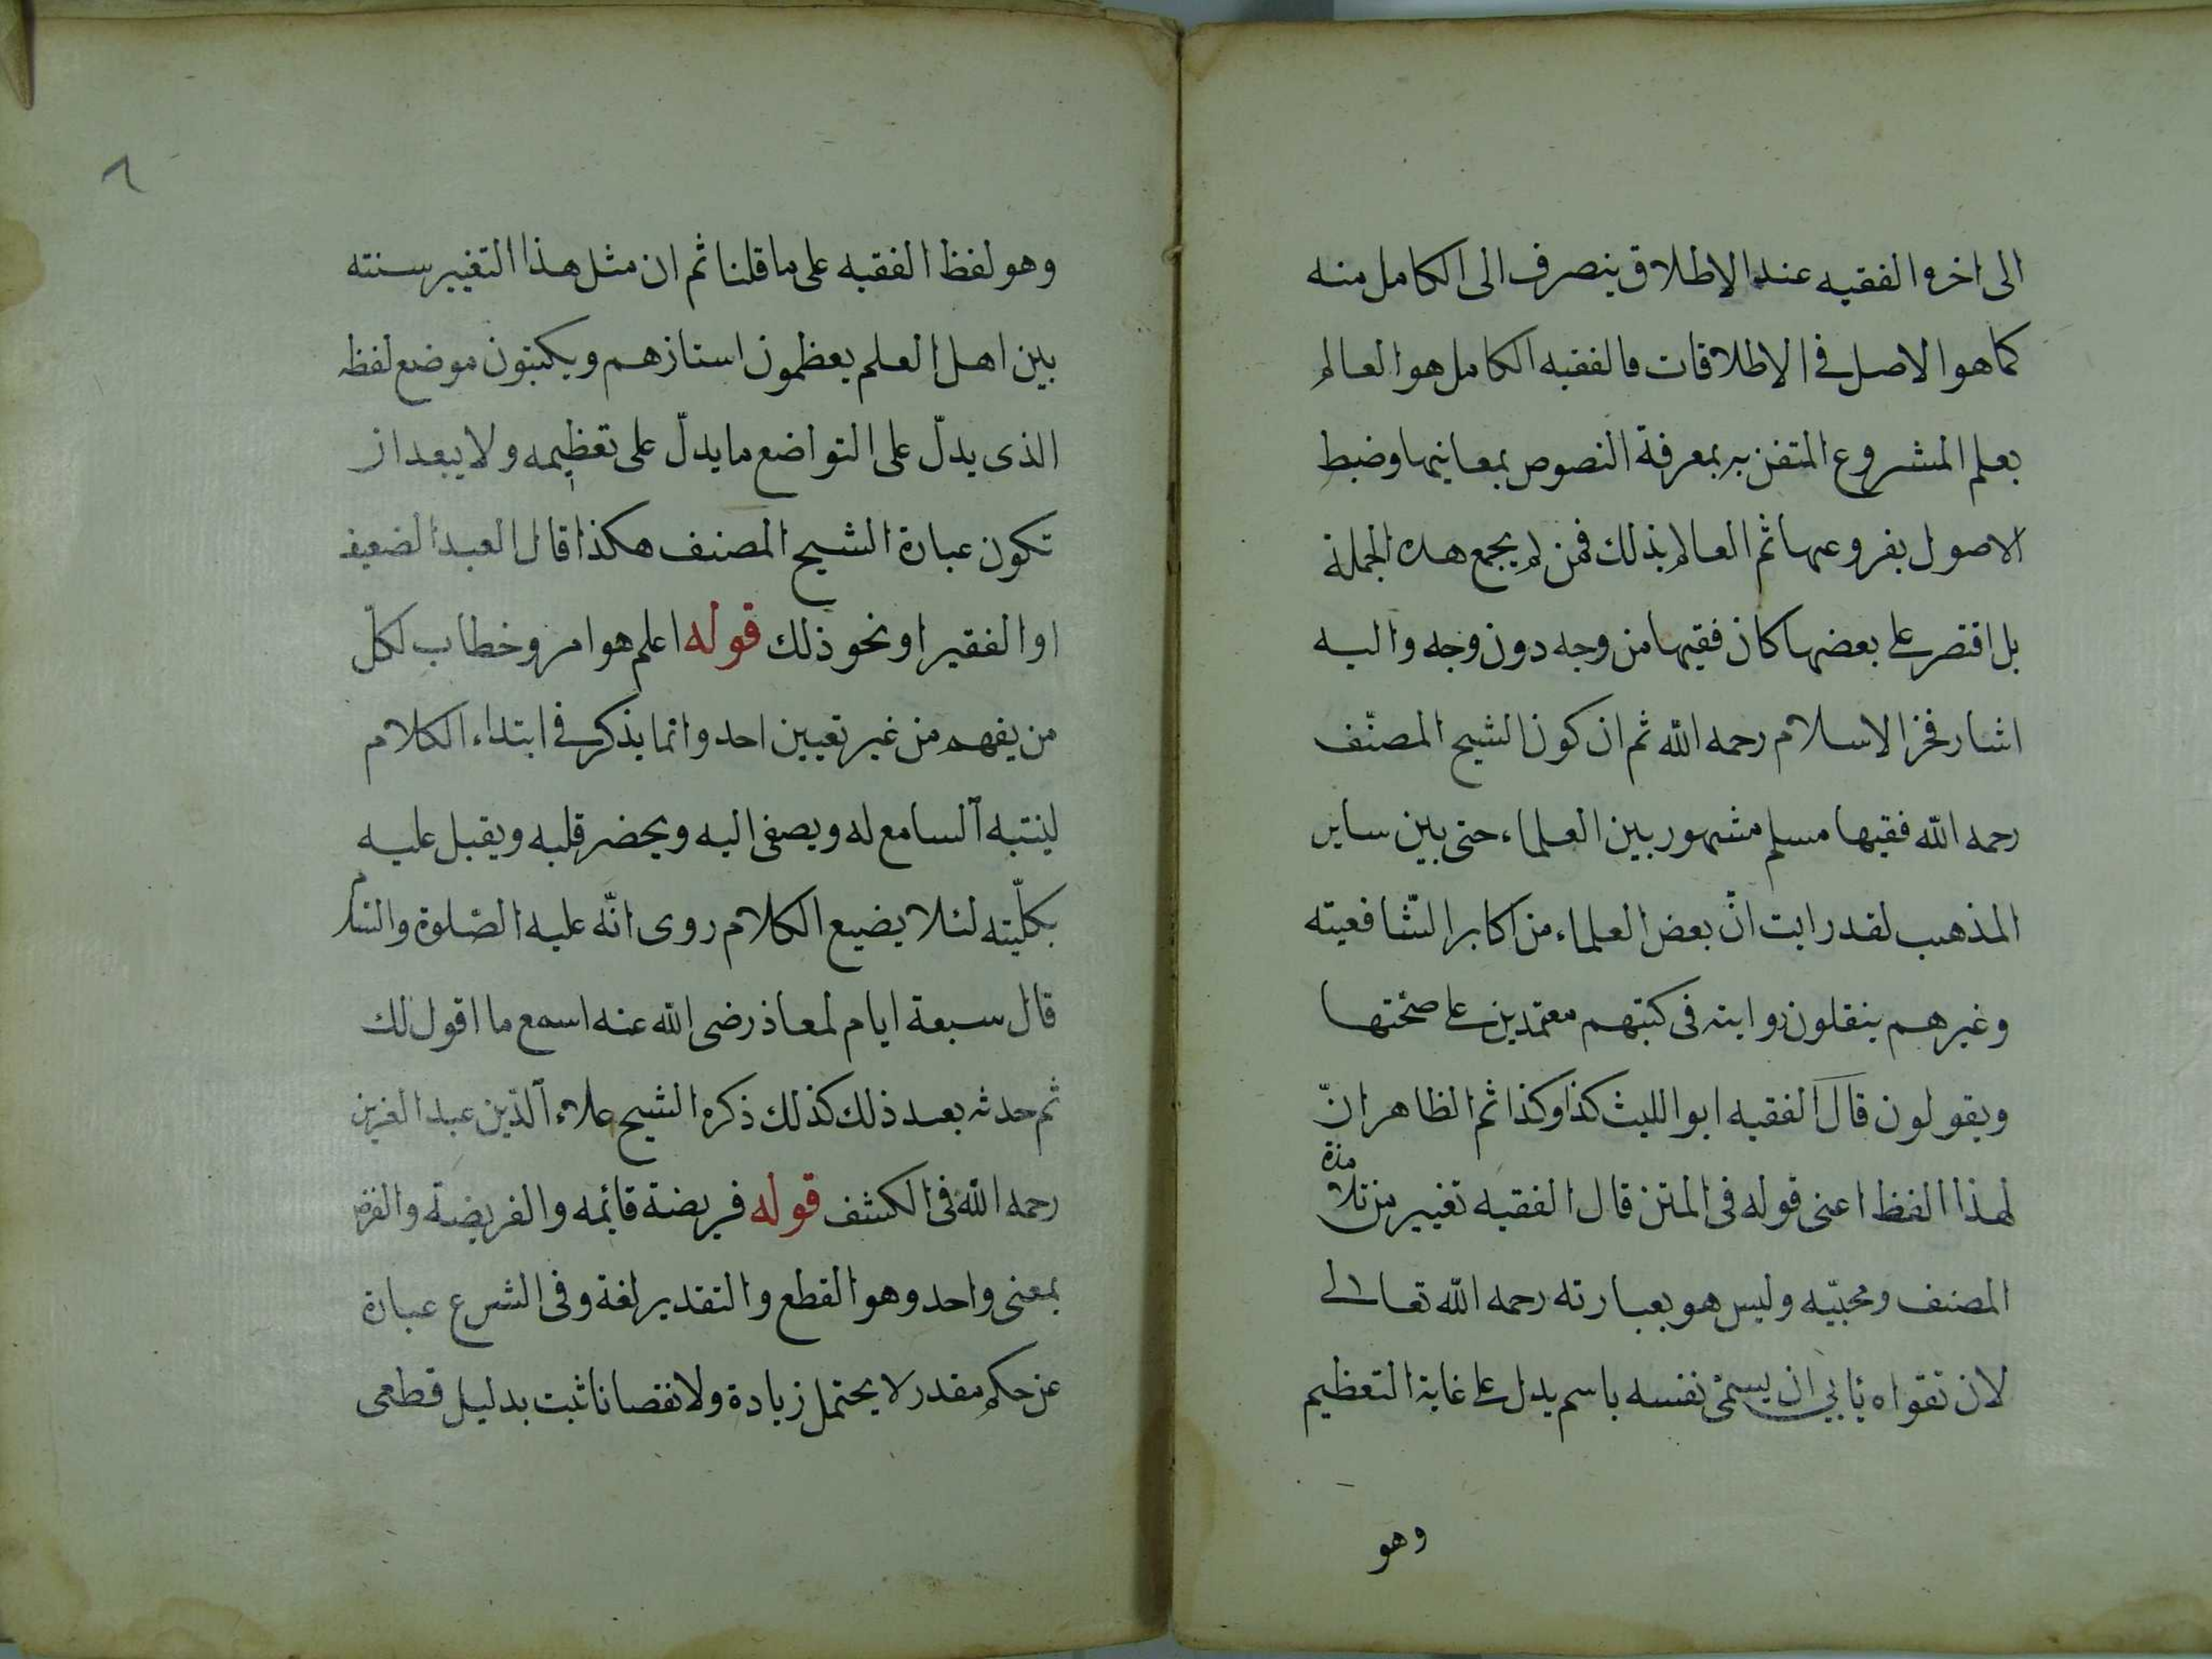 الى اخره والفقيه عند الاطلاق ينصرف الى الكامل منه
كما هو الاصل في الاطلاقات فالفقيه الكامل هو العالم
بعلم المشروع المتقن به بمعرفة النصوص بمعانيها وضبط
الاصول بفروعها ثم العالم بذلك فمن لم يجمع هذه الجملة
بل اقتصر على بعضها كان فقيها من وجه دون وجه واليه
اشار فخر الاسلام رحمه الله ثم ان كون الشيخ المصنّف
رحمه الله فقيها مسلم مشهور بين العلماء حتى بين ساير
المذهب لقد رايت انّ بعض العلماء من اكابر الشّافعيته
وغيرهم ينقلون روايته فى كتبهم معتمدين على صحّتها
ويقولون قال الفقيه ابو الليث كذا وكذا ثم الظاهر انّ
لهذا الفظ اعنى قوله فى المتن قال الفقيه تغيير من تلامذة
المصنف ومحبيّه وليس هو بعبارته رحمه الله تعالى
لان تقواه يأبي ان يسمّى نفسه باسم يدل على غاية التعظيم
وهو
٨
وهو لفظ الفقيه على ما قلنا ثم ان مثل هذا التغيير سنته
بين اهل العلم يعظمون استازهم ويكتبون موضع لفظه
الذى يدلّ على التواضع ما يدلّ على تعظيمه ولا يبعد ان
تكون عبارة الشيخ المصنف هكذا قال العبد الضعيف
او الفقير او نحو ذلك قوله اعلم هو امر وخطاب لكلّ
من يفهم من غير تعيين احد وانما يذكر في ابتداء الكلام
لينتبه السامع له ويصغى اليه ويحضر قلبه ويقبل عليه
بكلّيته لئلا يضيع الكلام روى انّه عليه الصّلوة والسّلام
قال سبعة ايام لمعاذ رضى الله عنه اسمع ما اقول لك
ثم حدثه بعد ذلك كذلك ذكره الشيخ علاء الدّين عبد العزيز
رحمه الله فى الكشف قوله فريضة قائمه والفريضة والفرض
بمعنى واحد وهو القطع والتقدير لغة وفى الشرع عبارة
عن حكم مقدر لا يحتمل زيادة ولا نقصانا ثبت بدليل قطعى